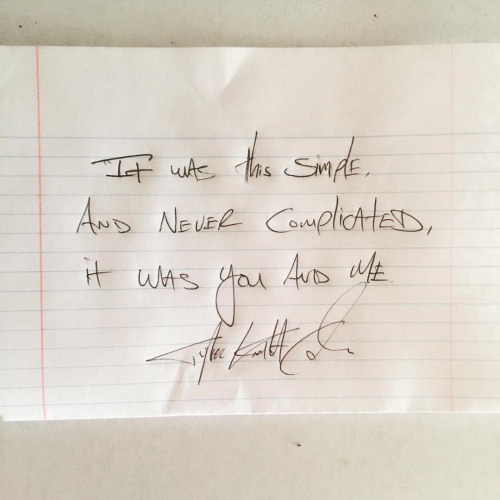 It was this simple.
And never complicated,
it was you and me
Tyler Knott